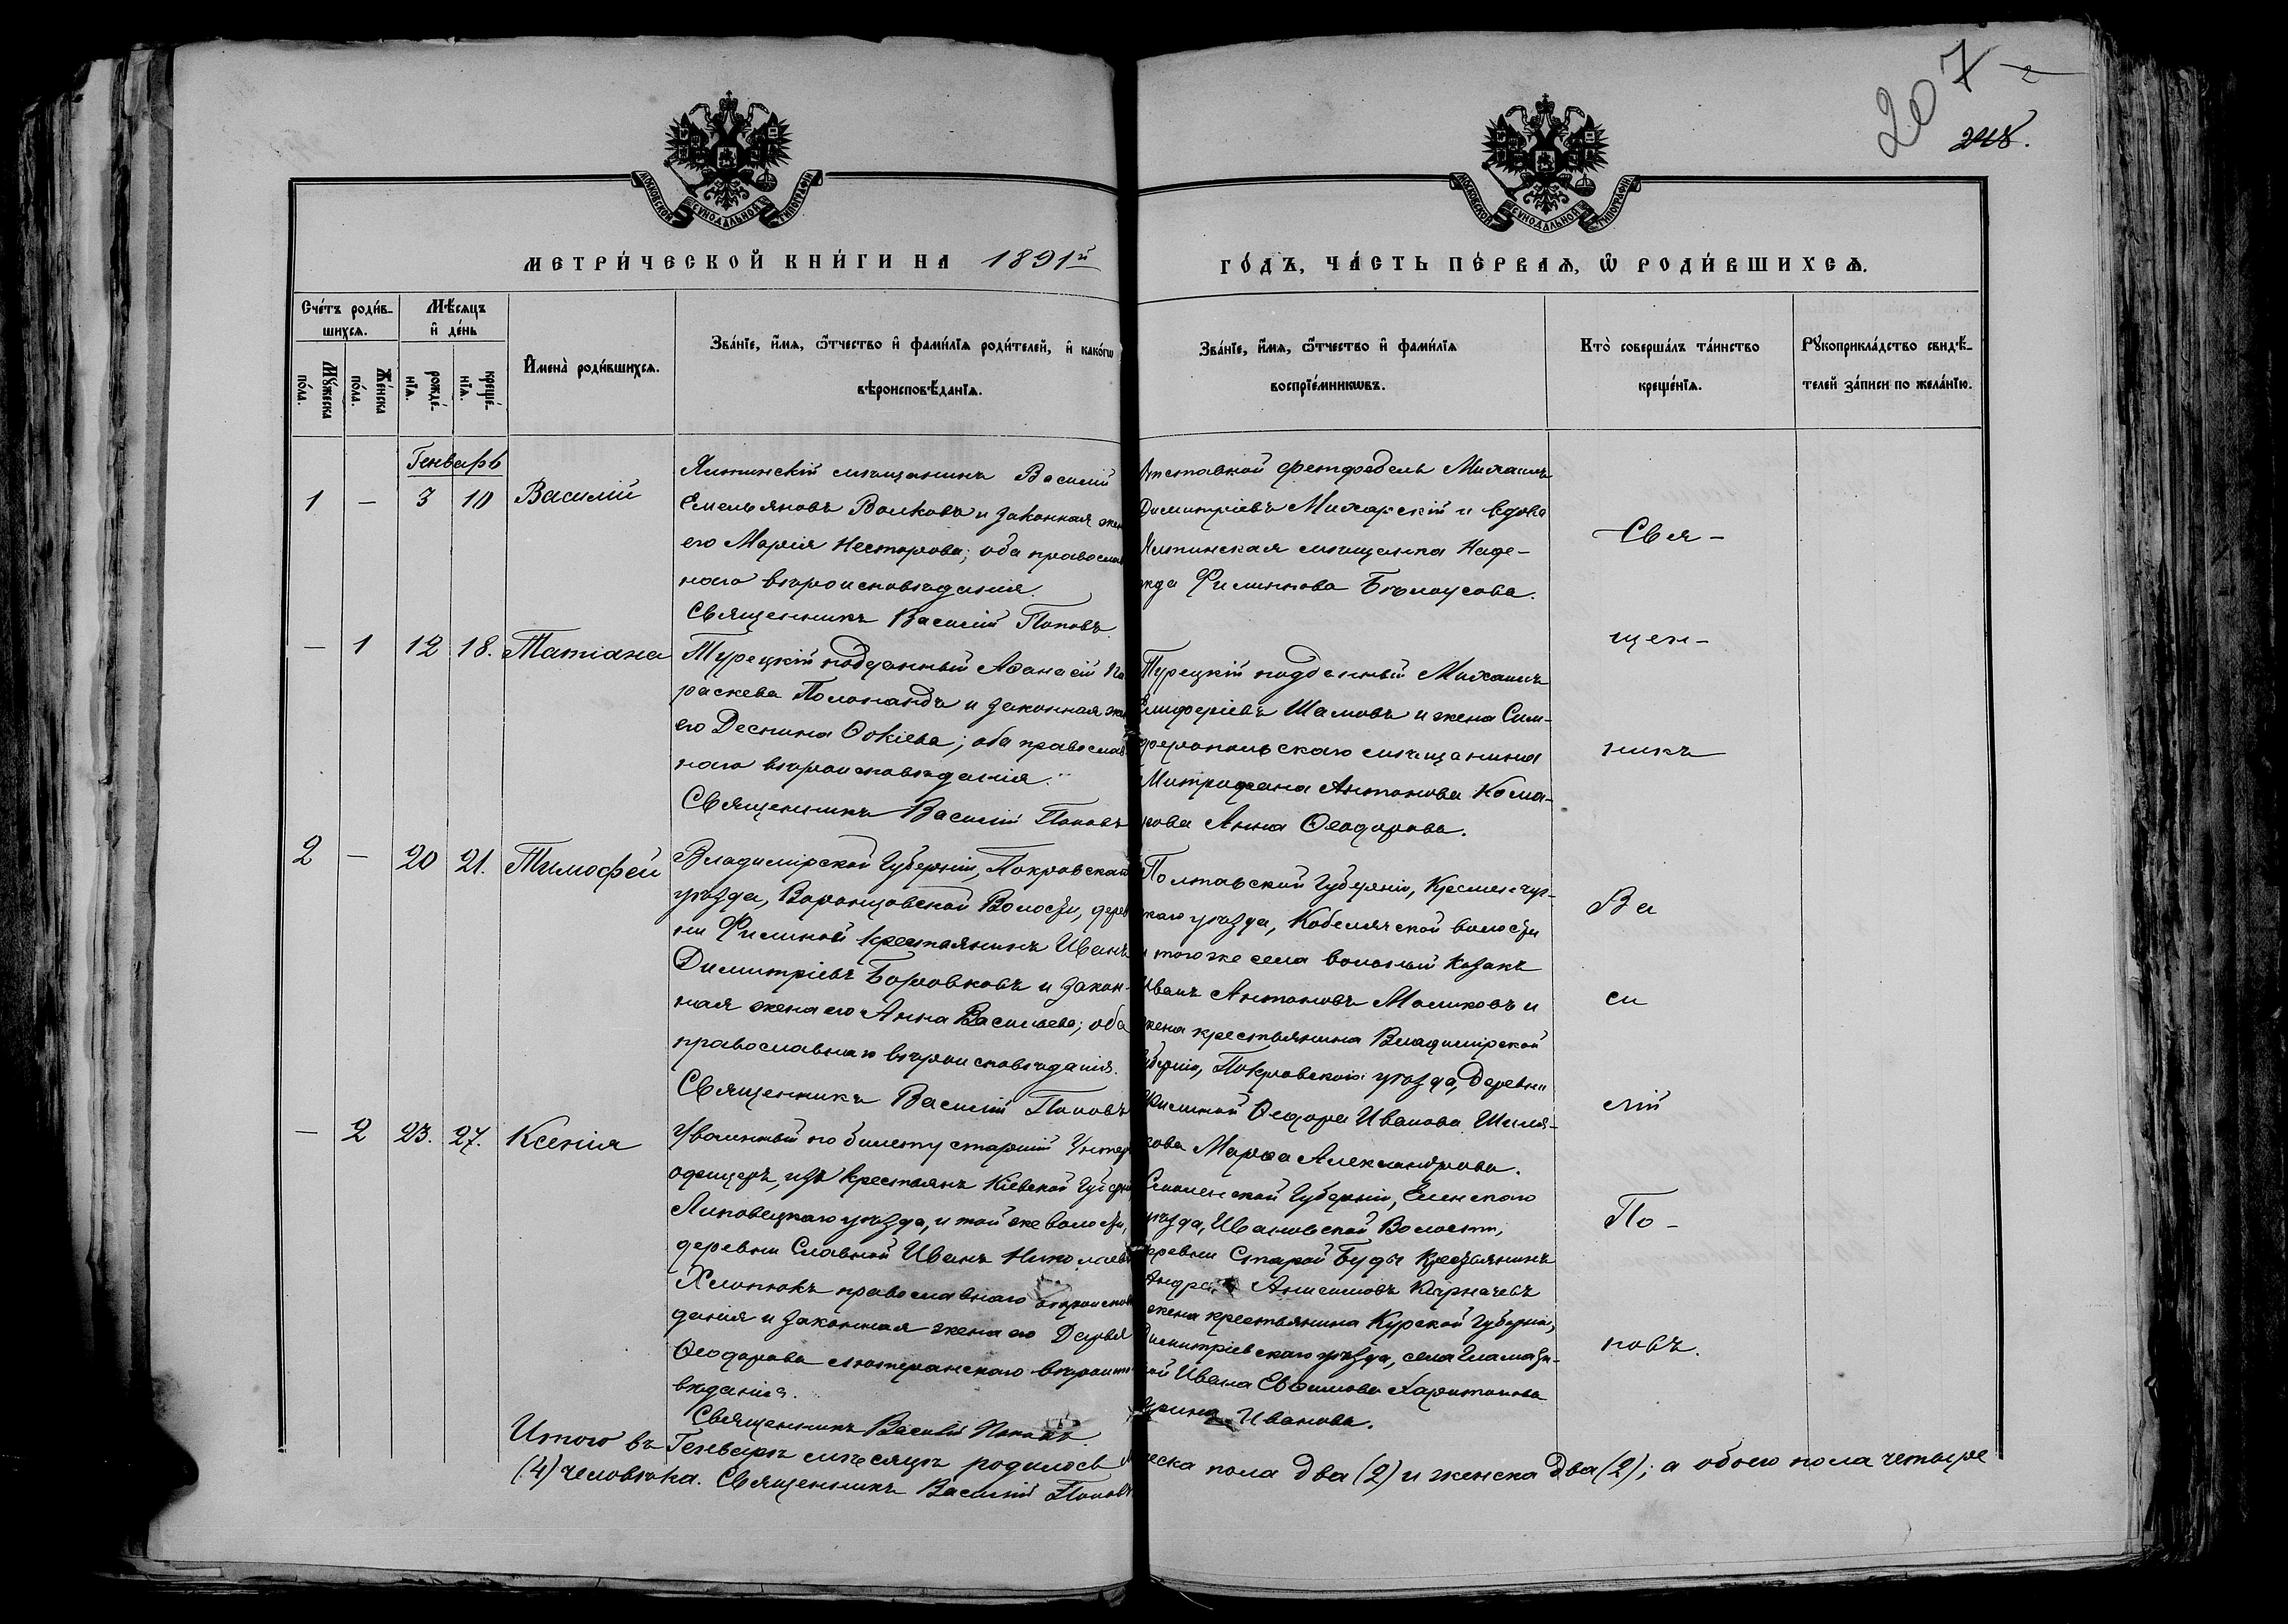 207
2
218.
МОСКОВСКОЙ СѴНОДАЛЬНОЙ ТИПОГРАФІИ
МОСКОВСКОЙ СѴНОДАЛЬНОЙ ТИПОГРАФІИ
МЕТРИ́ЧЕСКОЙ КНИ́ГИ НА 1891й
ГО́ДЪ, ЧА́СТЬ ПЕ́РВАѦ, Ѽ РОДИ́ВШИХСѦ.
Сче́тъ роди́в-
шихсѧ.
Мꙋ́жеска по́ла.
Же́нска по́ла.
Мѣ́сѧцъ
и҆ де́нь
рожде́-
нїѧ.
креще́-
нїѧ.
И҆мена̀ роди́вшихсѧ.
Зва́нїе, и҆́мѧ, ѻ҆́тчество и҆ фами́лїѧ роди́телей, и҆ како́гѡ
вѣроисповѣ́данїѧ.
Зва́нїе, и҆́мѧ, ѻ҆́тчество и҆ фами́лїѧ
воспрїе́мникѡвъ.
Кто̀ соверша́лъ та́инство
креще́нїѧ.
Рꙋкоприкла́дство свидѣ́-
телей за́писи по жела́нїю.
Генварь
1 — 3 10 Василій
Ялтинскій мѣщанинъ Василій
Емельяновъ Волковъ и законная жен
его Марія Несторова; оба православ
наго вѣроисповѣданія.
Священникъ Василій Поповъ
Отставной фельдфебель Михаилъ
Димитріевъ Михарскій и вдова
Ялтинская мѣщанка Наде-
жда Филиппова Бѣлоусова.
— 1 12 18. Татіана
Турецкій подданный Аѳанасій Па
раскева Полонандъ и законная жен
его Деспина Ѳокіева; оба православ
наго вѣроисповѣданія.
Священникъ Василій Поповъ
Турецкій подданный Михаилъ
Елиферіевъ Шамовъ и жена Сим-
феропольскаго мѣщанина
Митрофана Антонова Кома-
рова Анна Ѳеодорова.
2 — 20 21. Тимофей
Владимірской Губерніи, Покровскаго
уѣзда, Воронцовской Волости, дерев
ни Филиной крестьянинъ Иванъ
Димитріевъ Боровковъ и закон-
ная жена его Анна Васильева; оба
православнаго вѣроисповѣданія.
Священникъ Василій Поповъ
Полтавской Губерніи, Кременчуг-
скаго уѣзда, Кобелячской волости
и того же села вольный козакъ
Иванъ Антоновъ Маликовъ и
жена крестьянина Владимірской
Губерніи, Покровскаго уѣзда, Деревни
Филиной Ѳеодора Иванова Шиля-
кова Марѳа Александрова.
— 2 23. 27. Ксенія
Уволенный по билету старшій Унтер
офицеръ, изъ крестьянъ Кіевской Губерніи
Липовецкаго уѣзда, и той же волости,
деревни Славной Иванъ Николаевъ
Хлопюкъ православнаго вѣроиспов
данія и законная жена его Дарья
Ѳеодорова лютеранскаго вѣроиспо
вѣданія.
Священникъ Василій Поповъ.
Смоленской Губерніи, Еленскаго
уѣзда, Ивановской Волости,
деревни Старой Буды Крестьянинъ
Андрей Анисимовъ Карначевъ
жена крестьянина Курской Губерніи,
Димитріевскаго уѣзда, села
Ивана Евѳимова Харитонова
Ирина Иванова.
Свя-
щен-
никъ
Ва
си
лій
По-
повъ.
Итого въ Генварѣ мѣсяцѣ родилось мужеска пола два (2) и женска два (2); а обоего пола четыре
(4) человѣка. Священникъ Василій Поповъ